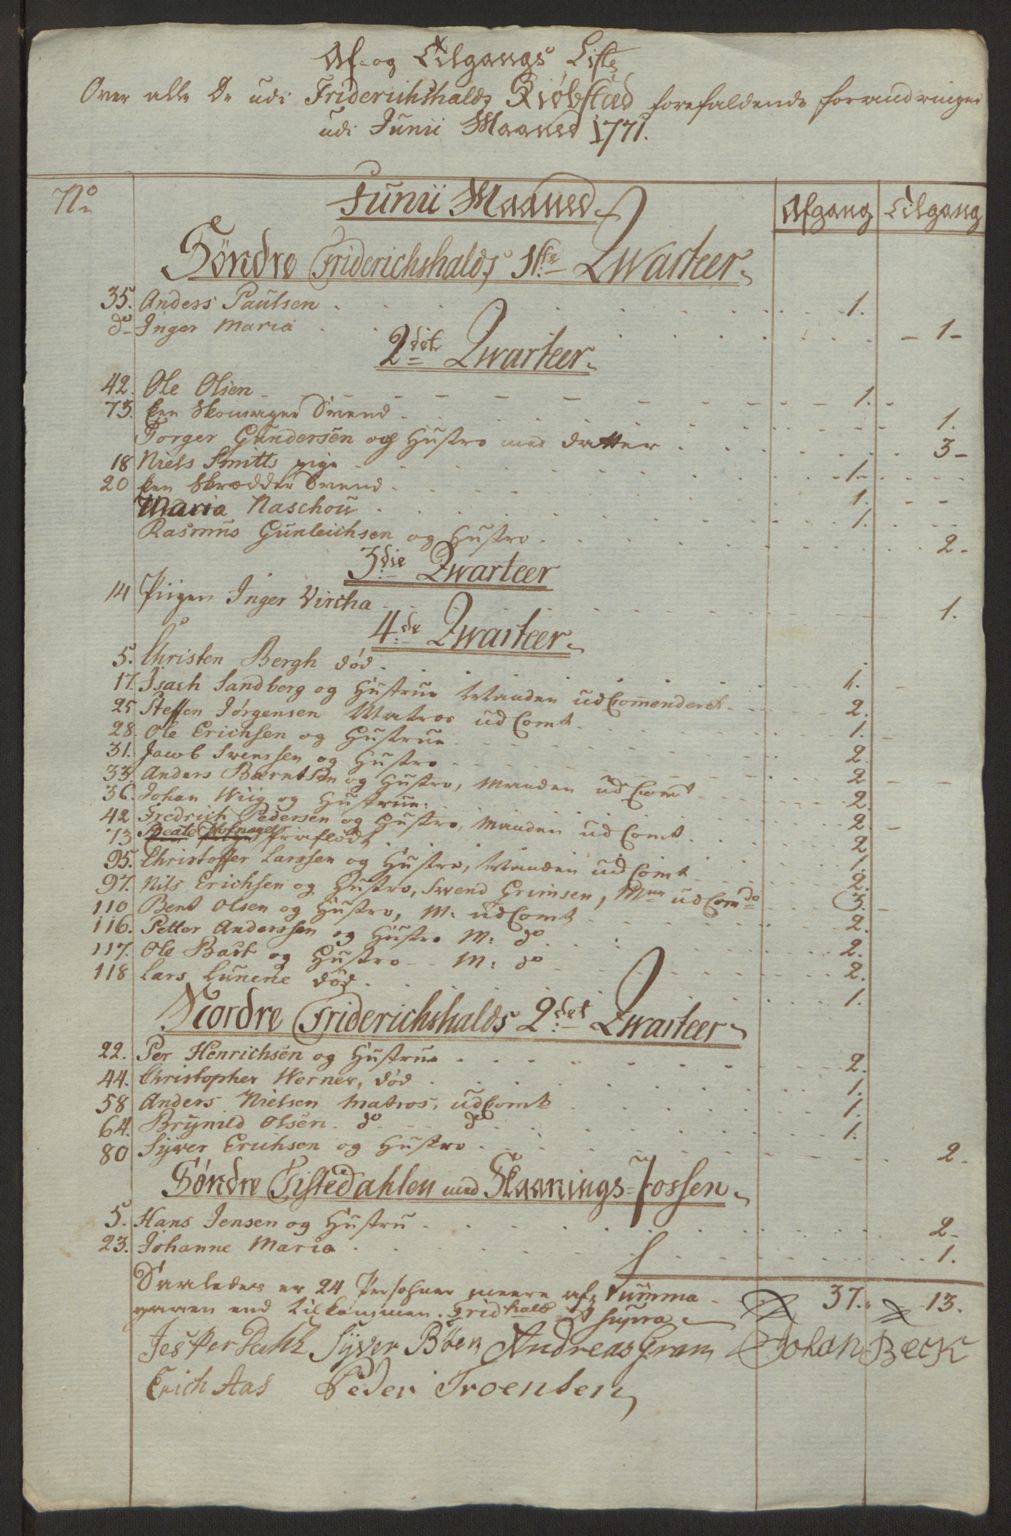 Af- og Tilgangs Liste
Over alle De udi Friderichshalds Kiöbstæd forefaldende forandringer
udi Junii Maaned 1771.
No Junii Maaned Afgang Tilgang
Söndre Friderichshalds 1ste Qwarteer
35. Anders Paulsen 1.
do Inger Maria 1
2det Qwarteer
42. Ole Olsen 1.
73. Een Skomager Svend 1.
Torger Gundersen og Hustro med datter 3
18 Niels Smitts pige 1
20 Een Skrædder Svend 1.
Maria Naschou 1.
Rasmus Gunleichsen og Hustro 2
3die Qwarteer
14 Piigen Inger Vircha 1.
4de Qwarteer
5. Christen Bergh död 1.
17. Isach Sandberg og Hustrue Manden udCommenderet 2.
25. Steffen Jörgensen Matros udComt 1.
28. Ole Erichsen og Hustrue 2.
31. Jacob Svenssen og Hustro 2
33. Anders Bærntsen og Hustro, Manden udComt 2.
36. Johan Wiig og Hustrue. 2
42. Fredrich Pedersen og Hustro, Manden udComt 2
73 fraflödt 1.
95. Christoffer Larssen og Hustro, Manden udComt 2.
97. Nils Erichsen og Hustro, Svend Grimsen, Mnn udComdo 3
110 Bent Olsen og Hustro, M: udComt 2.
116. Petter Anderssen og Hustro M: do 2.
117. Ole Bast og Hustro M: do 2.
118 Lars Lunene död 1.
Nordre Friderichshalds 2det Qwarteer
22. Per Henrichsen og Hustrue 2.
44. Christopher Werner, död 1.
58 Anders Nielsen Matros, udComt 1.
64. Brynild Olsen do do 1.
80 Syver Erichsen og Hustro 2
Söndre Tistedahlen med Skaanings-Fossen
5. Hans Jensen og Hustru 2
23. Johanne Maria 1.
Saaledes er 24 Persohner meere af- Summa 37. 13.
gaaen end tilkommen. Fridhald ut supra
Jesper Syver Böen Andreas Gram Johan Beck
Erich Aas Peder Troensen